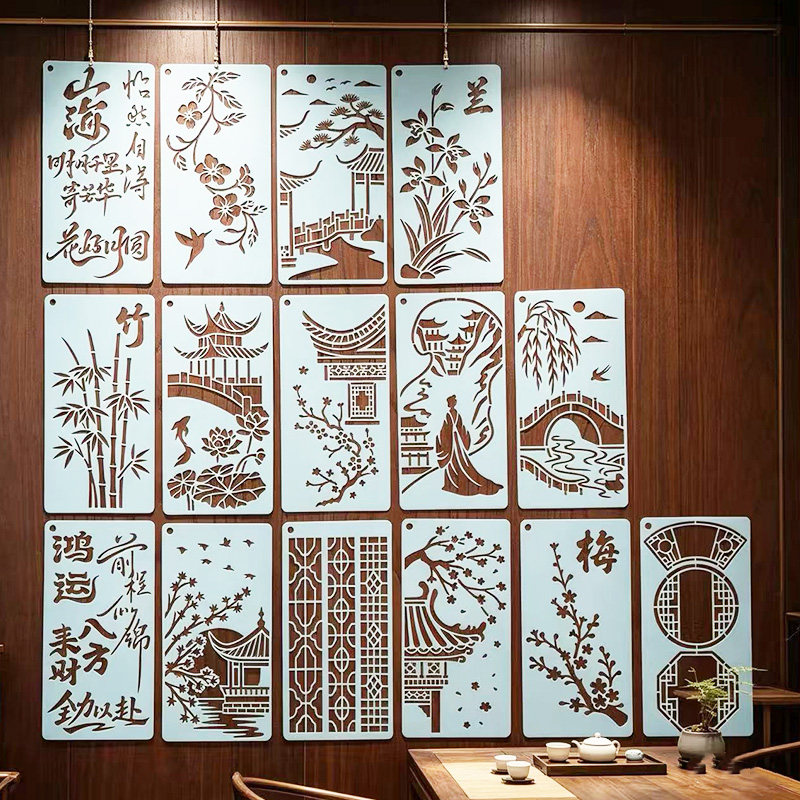 山海
怡然自得
明月千里
寄芳华
花好月圆
兰
竹
鸿运
前程似锦
八方
来财
全力以赴
梅